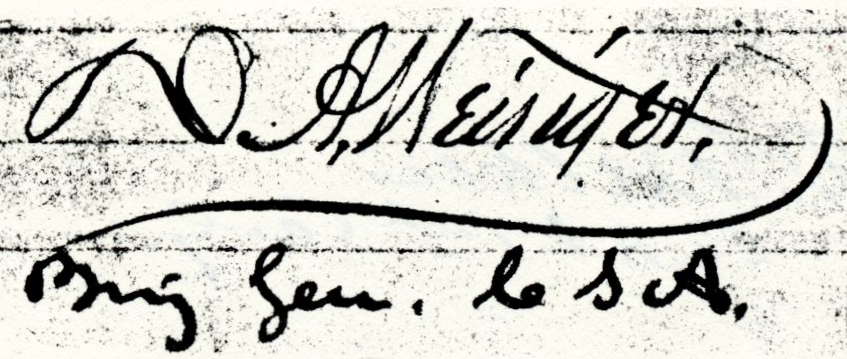 D. A. Weisiger.
Brig Gen. C S A.